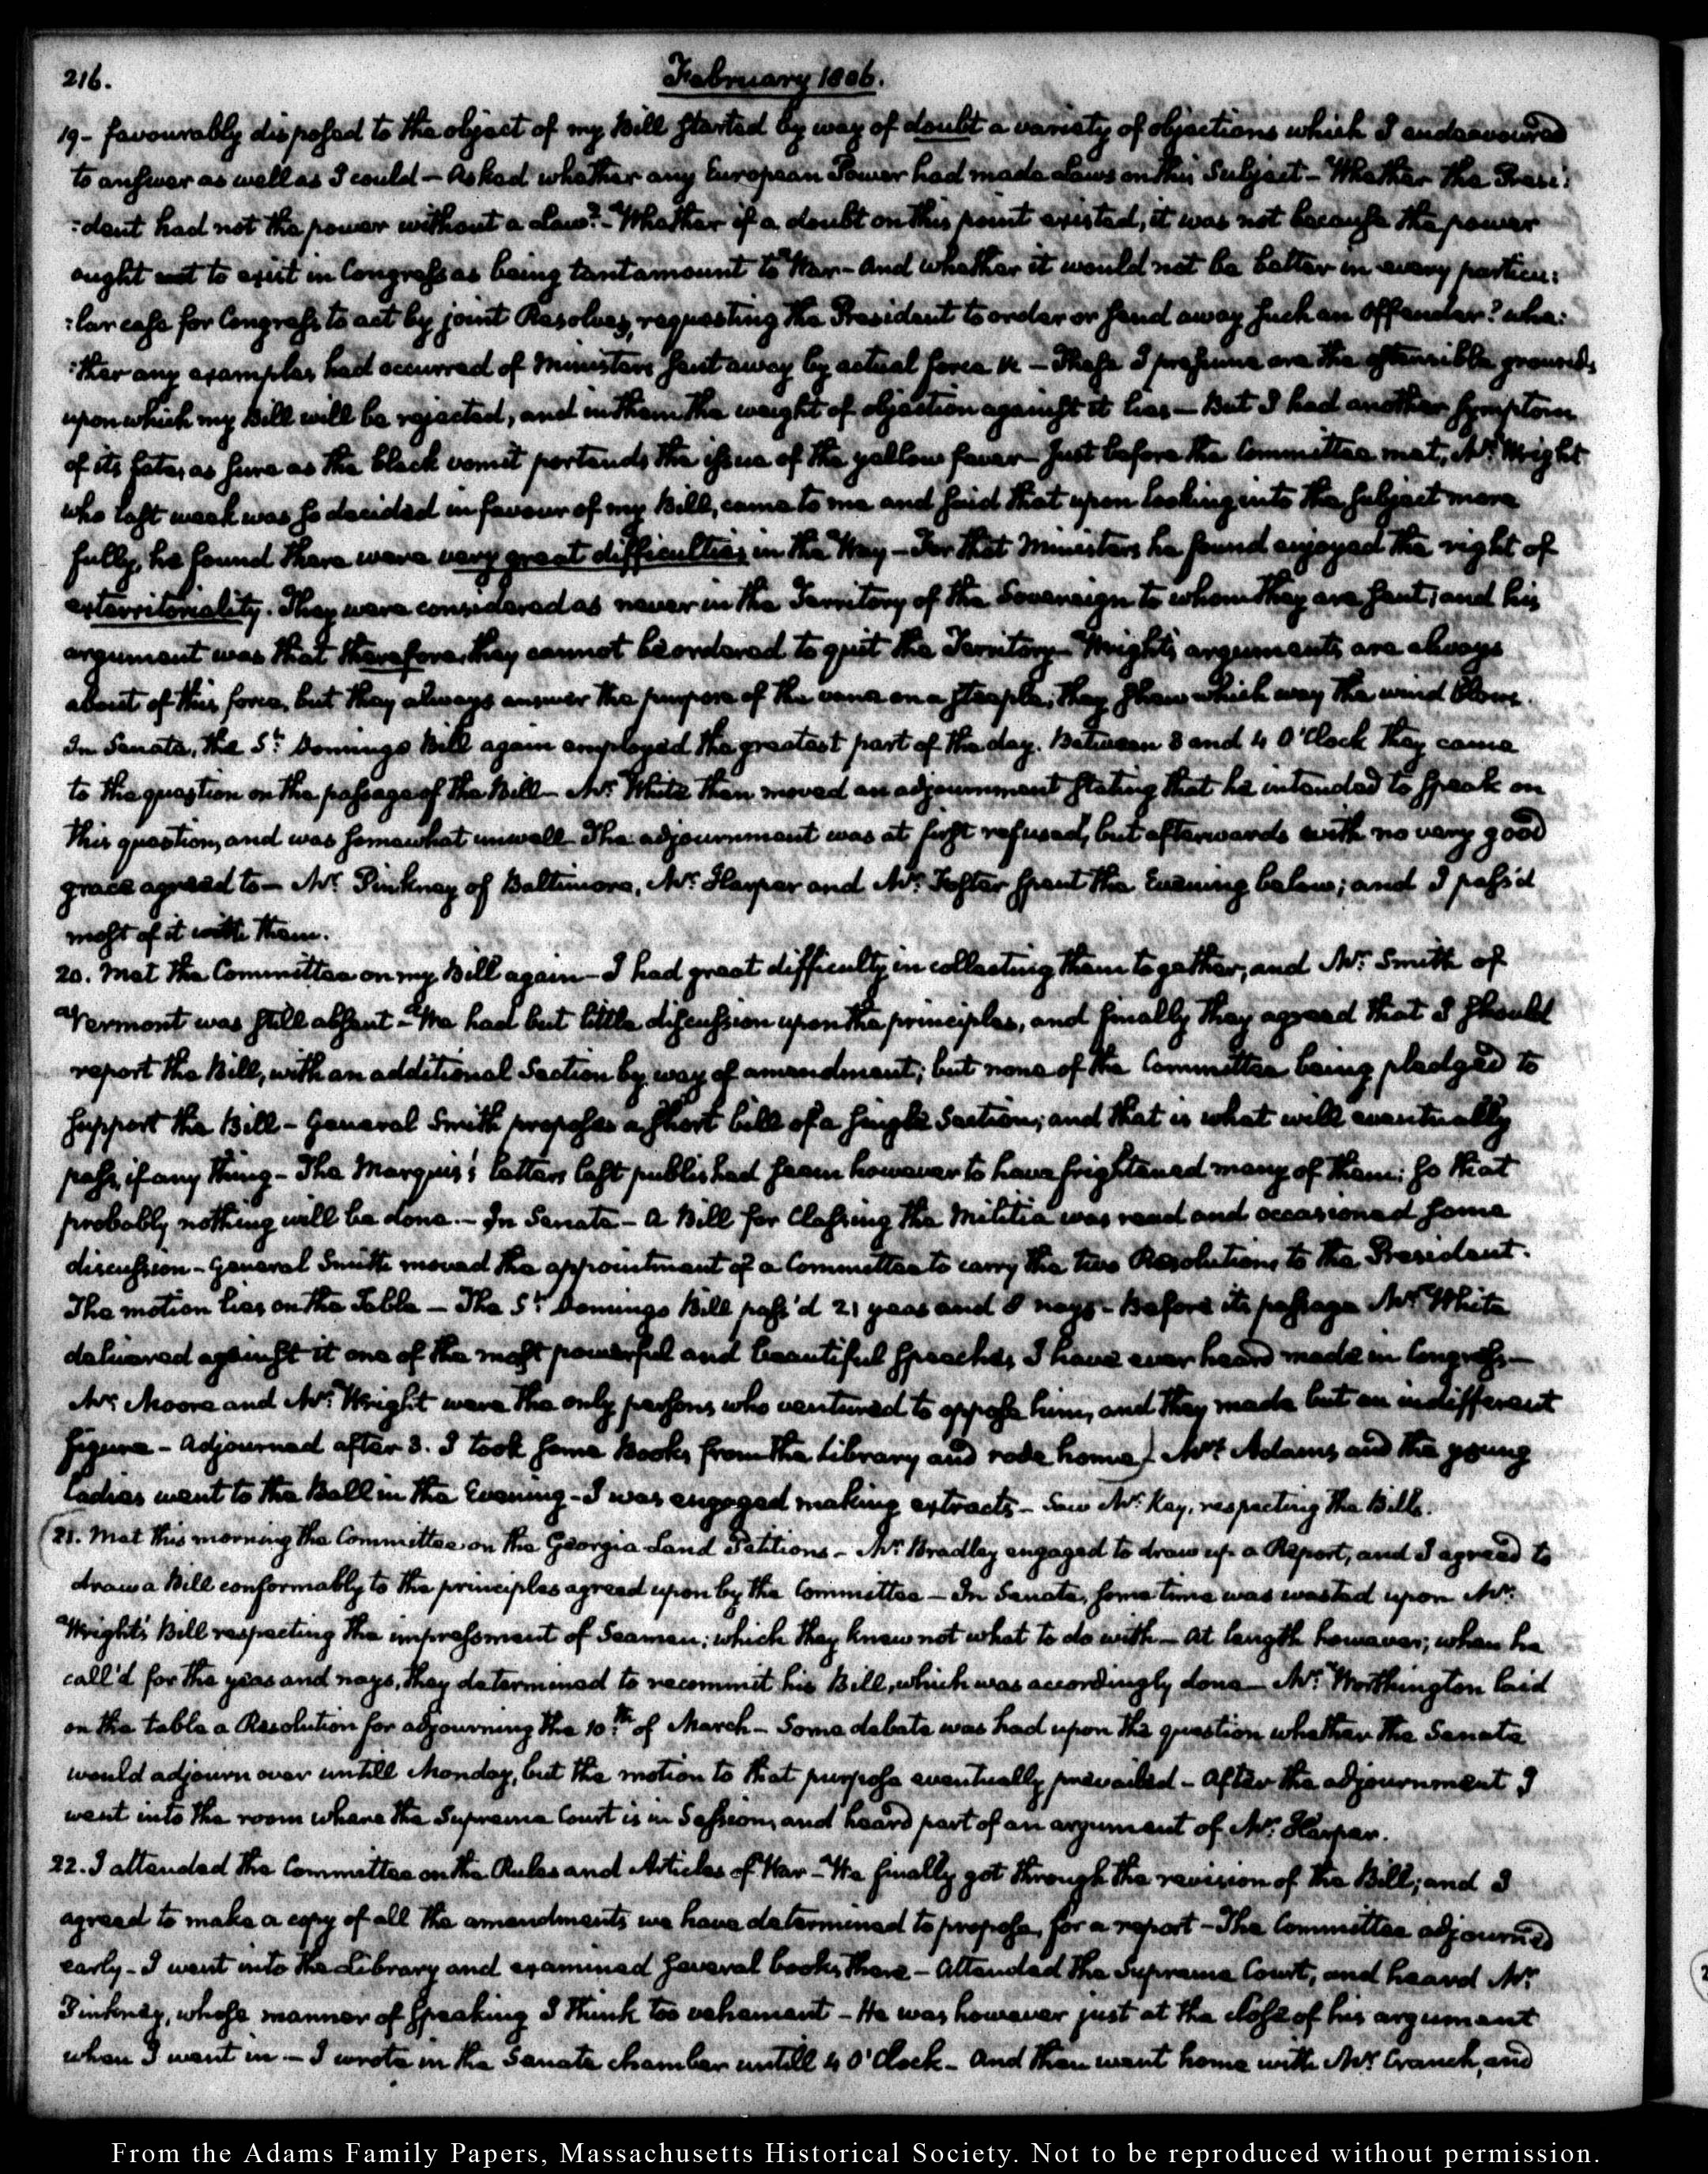 216.
February 1806.
19- favourably disposed to the object of my Bill started by way of doubt a variety of objections which I endeavoured
to answer as well as I could - Asked whether any European Power had made Laws on this Subject - Whether the Presi:
:dent had not the power without a Law? - Whether if a doubt on this point existed, it was not because the power
ought not to exist in Congress as being tantamount to War - And whether it would not be better in every particu:
:lar case for Congress to act by joint Resolves, requesting the President to order or send away such an Offender? whe:
:ther any examples had occurred of Ministers sent away by actual force &c - These I presume are the ostensible grounds
upon which my Bill will be rejected, and in them the weight of objection against it lies - But I had another symptom
of its fate, as sure as the black vomit portends the issue of the yellow fever - Just before the Committee met, Mr. Wright
who last week was so decided in favour of my Bill, came to me and said that upon looking into the subject more
fully, he found there were very great difficulties in the Way - For that Ministers he found enjoyed the right of
exterritoriality. They were considered as never in the Territory of the Sovereign to whom they are sent; and his
argument was that therefore, they cannot be ordered to quit the Territory - Wright's arguments are always
about of this force, but they always answer the purpose of the vane on a steeple, they shew which way the wind blows.
In Senate, the St. Domingo Bill again employed the greatest part of the day. Between 3 and 4 O'Clock they came
to the question on the passage of the Bill - Mr. White then moved an adjournment stating that he intended to speak on
this question, and was somewhat unwell - The adjournment was at first refused, but afterwards with no very good
grace agreed to - Mr. Pinkney of Baltimore, Mr. Harper and Mr. Foster spent the Evening below; and I pass'd
most of it with them.
20. Met the Committee on my Bill again - I had great difficulty in collecting them together, and Mr. Smith of
Vermont was still absent - We had but little discussion upon the principles, and finally they agreed that I should
report the Bill, with an additional Section by way of amendment; but none of the Committee being pledged to
support the Bill - General Smith proposes a short bill of a single Section; and that is what will eventually
pass, if any thing - The Marquis's letters last published seem however to have frightened many of them: so that
probably nothing will be done. - In Senate - A Bill for Classing the Militia was read and occasioned some
discussion - General Smith moved the appointment of a Committee to carry the two Resolutions to the President.
The motion lies on the Table - The St. Domingo Bill pass'd 21 yeas and 8 nays - Before its passage Mr. White
delivered against it one of the most powerful and beautiful speeches, I have ever heard made in Congress -
Mr. Moore and Mr. Wright were the only persons who ventured to oppose him, and they made but an indifferent
figure - Adjourned after 3. I took some Books from the Library and rode home) - Mrs. Adams and the young
Ladies went to the Ball in the Evening - I was engaged making extracts - Saw Mr. Key, respecting the Bills.
(21. Met this morning the Committee on the Georgia Land Petitions - Mr. Bradley engaged to draw up a Report, and I agreed to
draw a Bill conformably to the principles agreed upon by the Committee - In Senate, some time was wasted upon Mr.
Wright's Bill respecting the impressment of Seamen; which they knew not what to do with - At length however; when he
call'd for the yeas and nays, they determined to recommit his Bill, which was accordingly done - Mr. Worthington laid
on the table a Resolution for adjourning the 10th. of March - Some debate was had upon the question whether the Senate
would adjourn over untill Monday, but the motion to that purpose eventually prevailed - After the adjournment I
went into the room where the Supreme Court is in Session, and heard part of an argument of Mr. Harper.
22. I attended the Committee on the Rules and Articles of War - We finally got through the revision of the Bill; and I
agreed to make a copy of all the amendments we have determined to propose, for a report - The Committee adjourned
early - I went into the Library and examined several books there - Attended the Supreme Court, and heard Mr.
Pinkney, whose manner of speaking I think too vehement - He was however just at the close of his argument
when I went in - I wrote in the Senate chamber untill 4 O'Clock - And then went home with Mr. Cranch, and
From the Adams Family Papers, Massachusetts Historical Society. Not to be reproduced without permission.